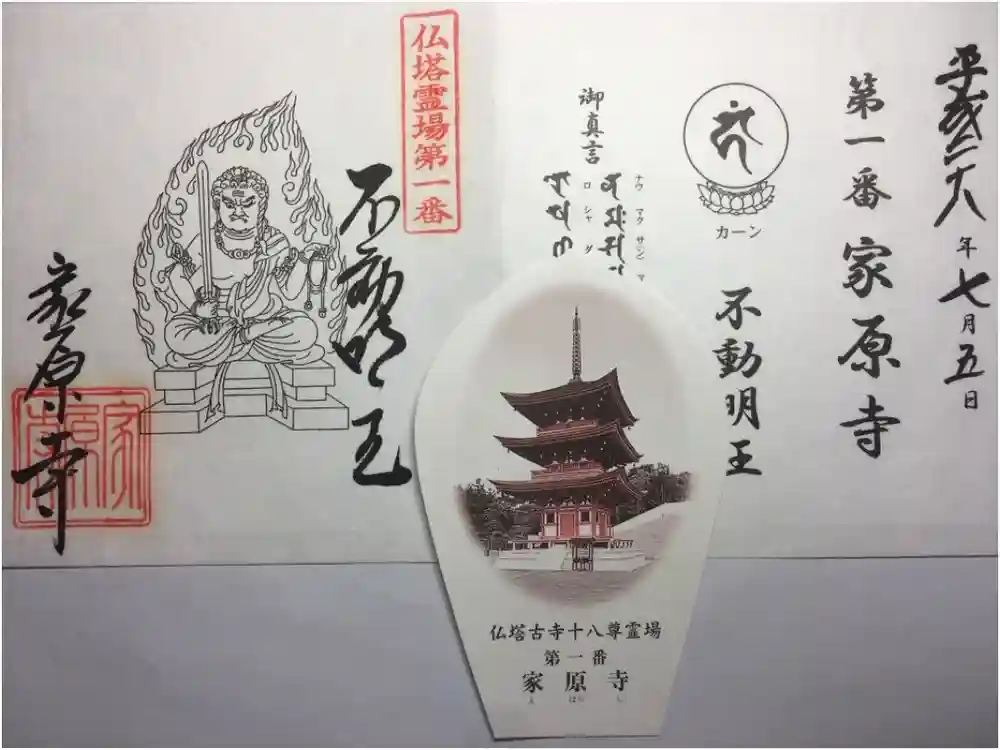 平成二十六年七月五日
第一番 家原寺
カーン
不動明王
御真言
ナウ マク サマン
ロ シャ ダ
仏塔霊場第一番
不動明王
家原寺
家原寺
仏塔古寺十八尊霊場
第一番
家原寺
えばらじ